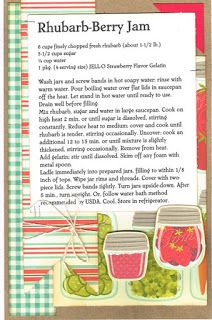 Rhubarb-Berry Jam
6 cups finely chopped fresh rhubarb (about 1-1/2 lb.)
5-1/2 cups sugar
¼ cup water
1 pkg. (4 serving size) JELL-O Strawberry Flavor Gelatin
Wash jars and screw bands in hot soapy water; rinse with
warm water. Pour boiling water over flat lids in saucepan
off the heat. Let stand in hot water until ready to use.
Drain well before filling
Mix rhubarb, sugar and water in large saucepan. Cook on
high heat 2 min. or until sugar is dissolved, stirring
constantly. Reduce heat to medium; cover and cook until
rhubarb is tender, stirring occasionally. Uncover; cook an
additional 12 to 15 min. or until mixture is slightly
thickened, stirring occasionally. Remove from heat.
Add gelatin; stir until dissolved. Skim off any foam with
metal spoon.
Ladle immediately into prepared jars, filling to within 1/8
inch of tops. Wipe jar rims and threads. Cover with two-
piece lids. Screw bands tightly. Turn jars upside-down. After
5 min., turn upright. Or, follow water bath method
recommended by USDA. Cool. Store in refrigerator.